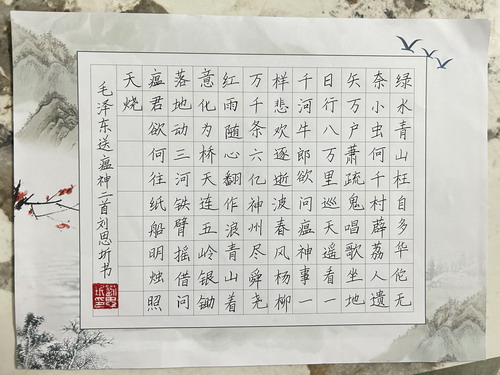 绿水青山枉自多华佗无
奈小虫何千村薜荔人遗
矢万户萧疏鬼唱歌坐地
日行八万里巡天遥看一
千河牛郎欲问瘟神事一
样悲欢逐逝波春风杨柳
万千条六亿神州尽舜尧
红雨随心翻作浪青山着
意化为桥天连五岭银锄
落地动三河铁臂摇借问
瘟君欲何往纸船明烛照
天烧
毛泽东送瘟神二首刘思圻书